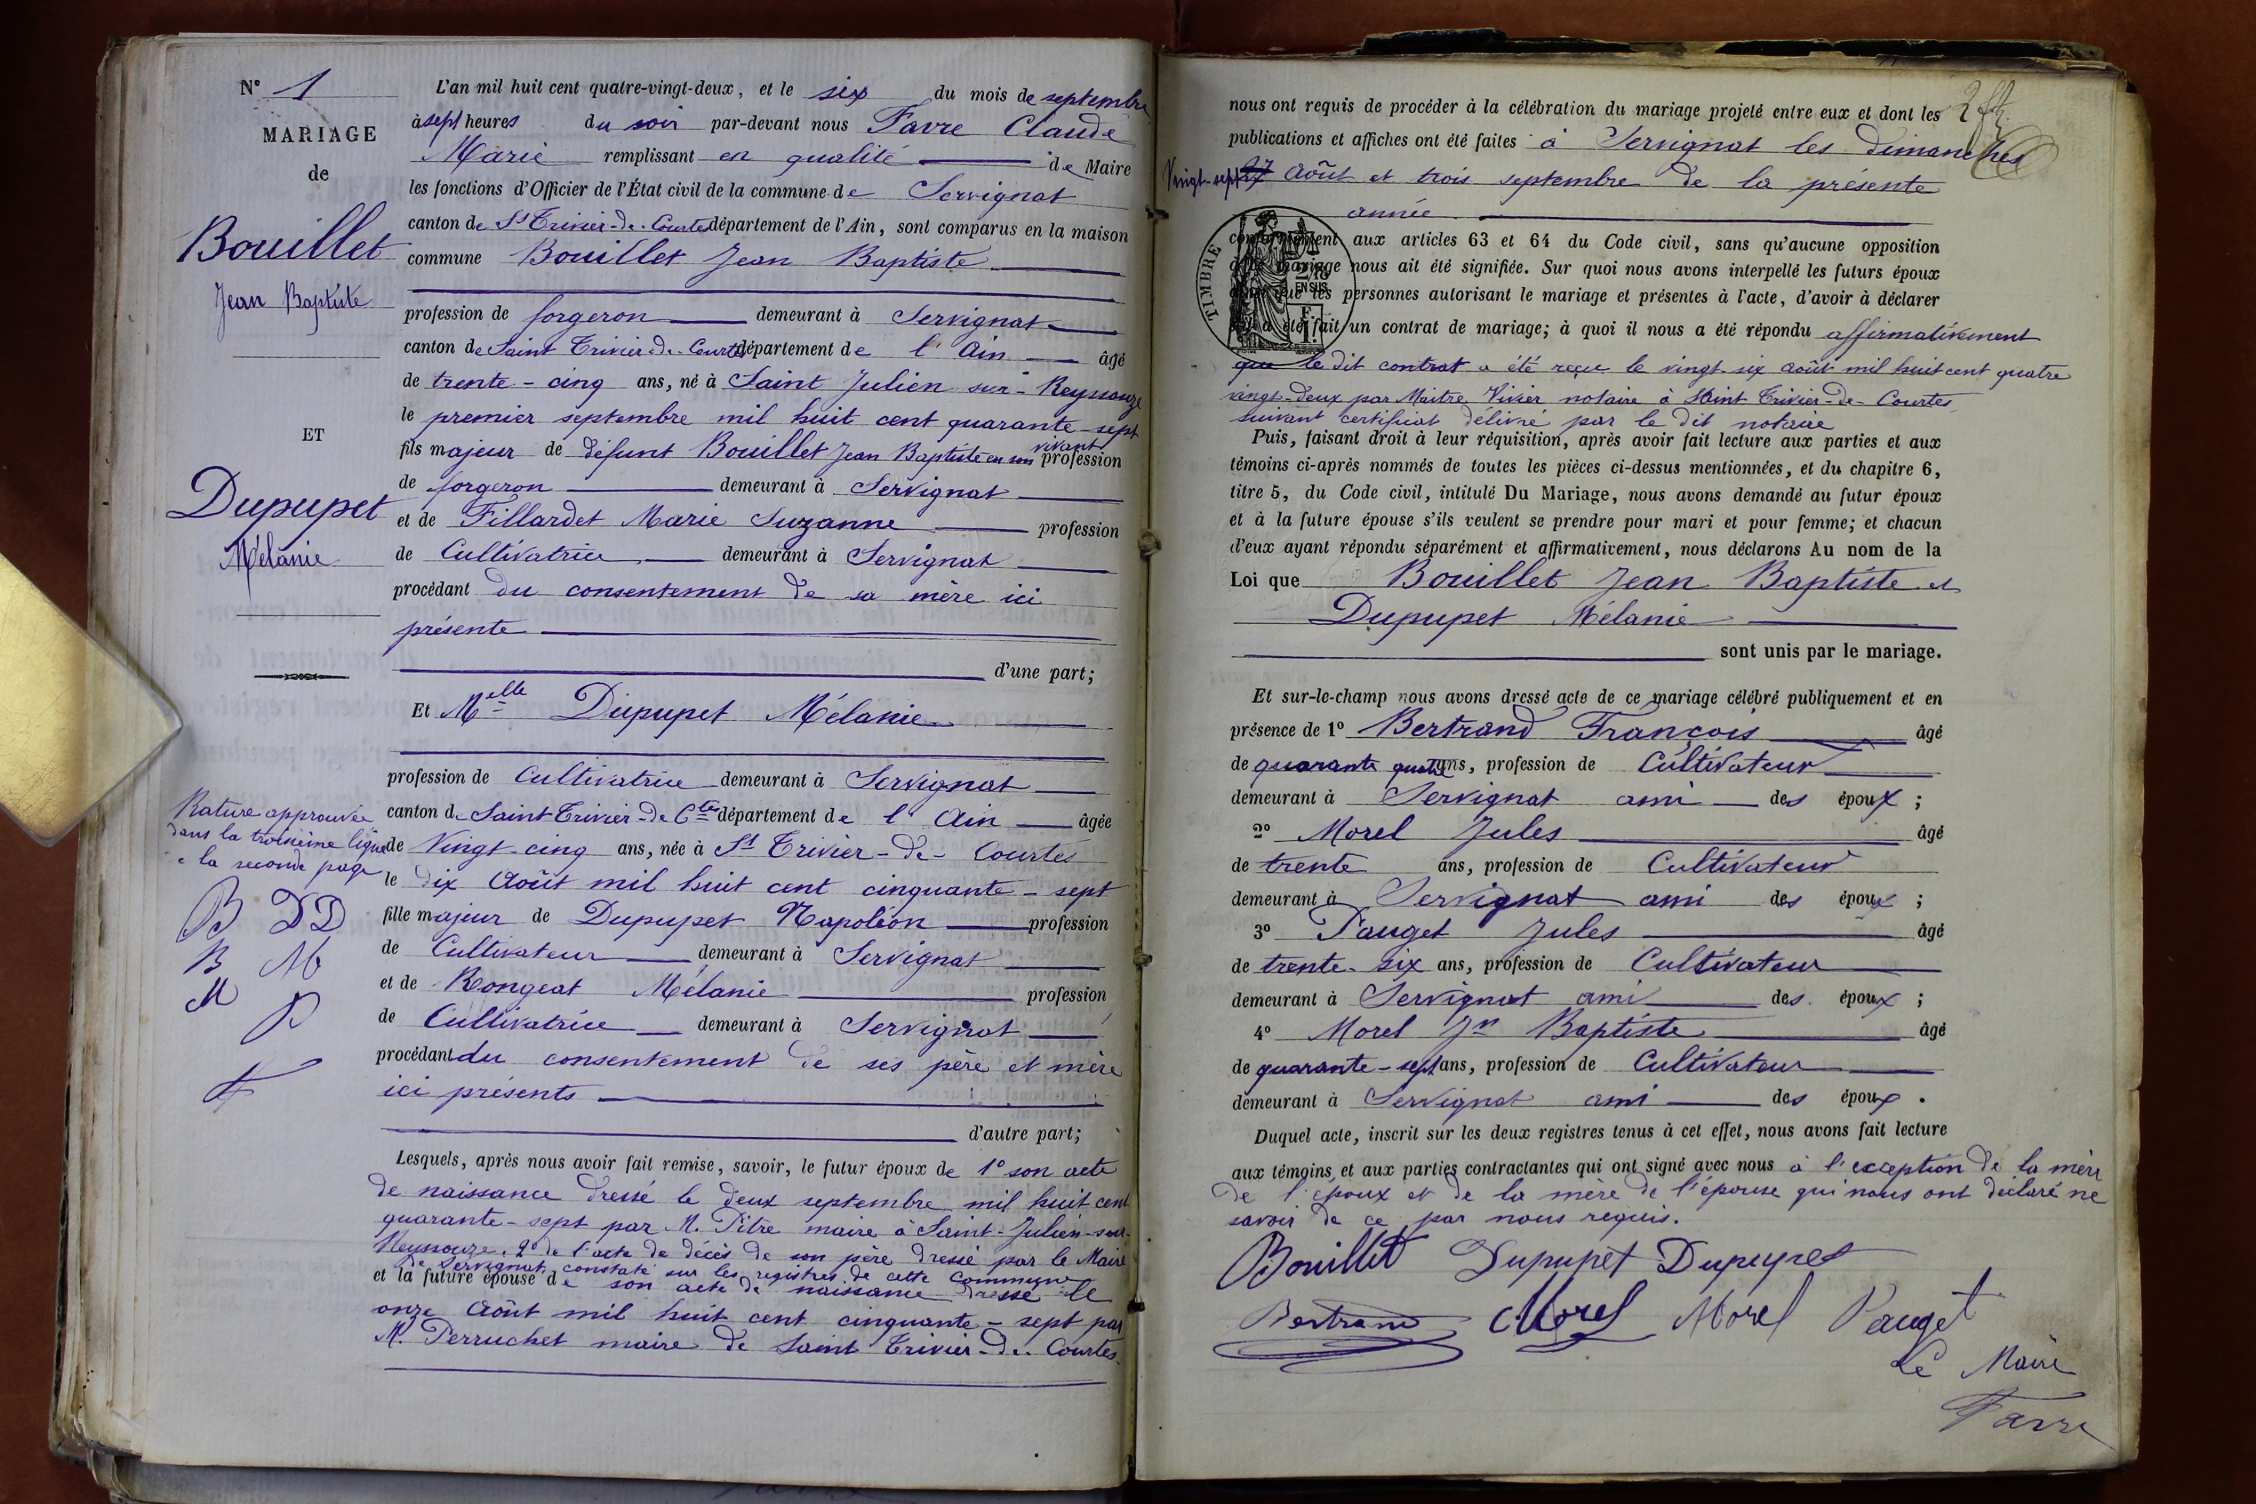 N° 1
MARIAGE
de
Bouillet
Jean Baptiste
ET
Dupupet
Mélanie
Rature approuvée
dans la troisième ligne
la seconde page
B DD
B M
M P
F
L'an mil huit cent quatre-vingt-deux, et le six du mois de septembre
à sept heures du soir par-devant nous Favre Claude
Marie remplissant en qualité de Maire
les fonctions d'Officier de l'État civil de la commune de Servignat
canton de St Trivier-de-Courtes département de l'Ain, sont comparus en la maison
commune Bouillet Jean Baptiste
profession de forgeron demeurant à Servignat
canton de Saint Trivier-de-Courtes département de l'Ain âgé
de trente-cinq ans, né à Saint Julien sur-Reyssouze
le premier septembre mil huit cent quarante-sept
fils majeur de défunt Bouillet Jean Baptiste en son vivant profession
de forgeron demeurant à Servignat
et de Fillardet Marie Suzanne profession
de Cultivatrice demeurant à Servignat
procédant du consentement de sa mère ici
présente
d'une part;
Et Melle Dupupet Mélanie
profession de Cultivatrice demeurant à Servignat
canton de Saint Trivier-de Ctes département de l'Ain âgée
de Vingt-cinq ans, née à St Trivier-de-Courtes
le dix Août mil huit cent cinquante-sept
fille majeur de Dupupet Napoléon profession
de Cultivateur demeurant à Servignat
et de Rongeat Mélanie profession
de Cultivatrice demeurant à Servignat
procédant du consentement de ses père et mère
ici présents
d'autre part;
Lesquels, après nous avoir fait remise, savoir, le futur époux de 1° son acte
de naissance dressé le deux septembre mil huit cent
quarante-sept par M. Pitre maire à Saint-Julien-sur-
Reyssouze, 2° de l'acte de décès de son père dressé par le Maire
de Servignat, constaté sur les registres de cette commune
et la future épouse de son acte de naissance dressé le
onze Août mil huit cent cinquante-sept par
M. Perruchet maire de Saint Trivier-de-Courtes.
nous ont requis de procéder à la célébration du mariage projeté entre eux et dont les
publications et affiches ont été faites à Servignat les dimanches
Vingt-sept 27 Août et trois septembre de la présente
année
conformément aux articles 63 et 64 du Code civil, sans qu'aucune opposition
mariage nous ait été signifiée. Sur quoi nous avons interpellé les futurs époux
que les personnes autorisant le mariage et présentes à l'acte, d'avoir à déclarer
a été fait un contrat de mariage; à quoi il nous a été répondu affirmativement
TIMBRE
2/10
EN SUS
F.
1.
que le dit contrat a été reçu le vingt-six août mil huit cent quatre
vingt-deux par Maitre Vivier notaire à Saint Trivier-de-Courtes
suivant certificat délivré par le dit notaire
Puis, faisant droit à leur réquisition, après avoir fait lecture aux parties et aux
témoins ci-après nommés de toutes les pièces ci-dessus mentionnées, et du chapitre 6,
titre 5, du Code civil, intitulé Du Mariage, nous avons demandé au futur époux
et à la future épouse s'ils veulent se prendre pour mari et pour femme; et chacun
d'eux ayant répondu séparément et affirmativement, nous déclarons Au nom de la
Loi que Bouillet Jean Baptiste et
Dupupet Mélanie
sont unis par le mariage.
Et sur-le-champ nous avons dressé acte de ce mariage célébré publiquement et en
présence de 1° Bertrand François âgé
de quarante quatre ans, profession de Cultivateur
demeurant à Servignat ami des époux ;
2° Morel Jules âgé
de trente ans, profession de Cultivateur
demeurant à Servignat ami des époux ;
3° Pauget Jules âgé
de trente-six ans, profession de Cultivateur
demeurant à Servignat ami des époux ;
4° Morel Jn Baptiste âgé
de quarante-sept ans, profession de Cultivateur
demeurant à Servignat ami des époux .
Duquel acte, inscrit sur les deux registres tenus à cet effet, nous avons fait lecture
aux témoins et aux parties contractantes qui ont signé avec nous à l'exception de la mère
de l'époux et de la mère de l'épouse qui nous ont déclaré ne
savoir de ce par nous requis.
Bouillet Dupupet Dupupet
Bertrand Morel Morel Pauget
Le Maire
Favre